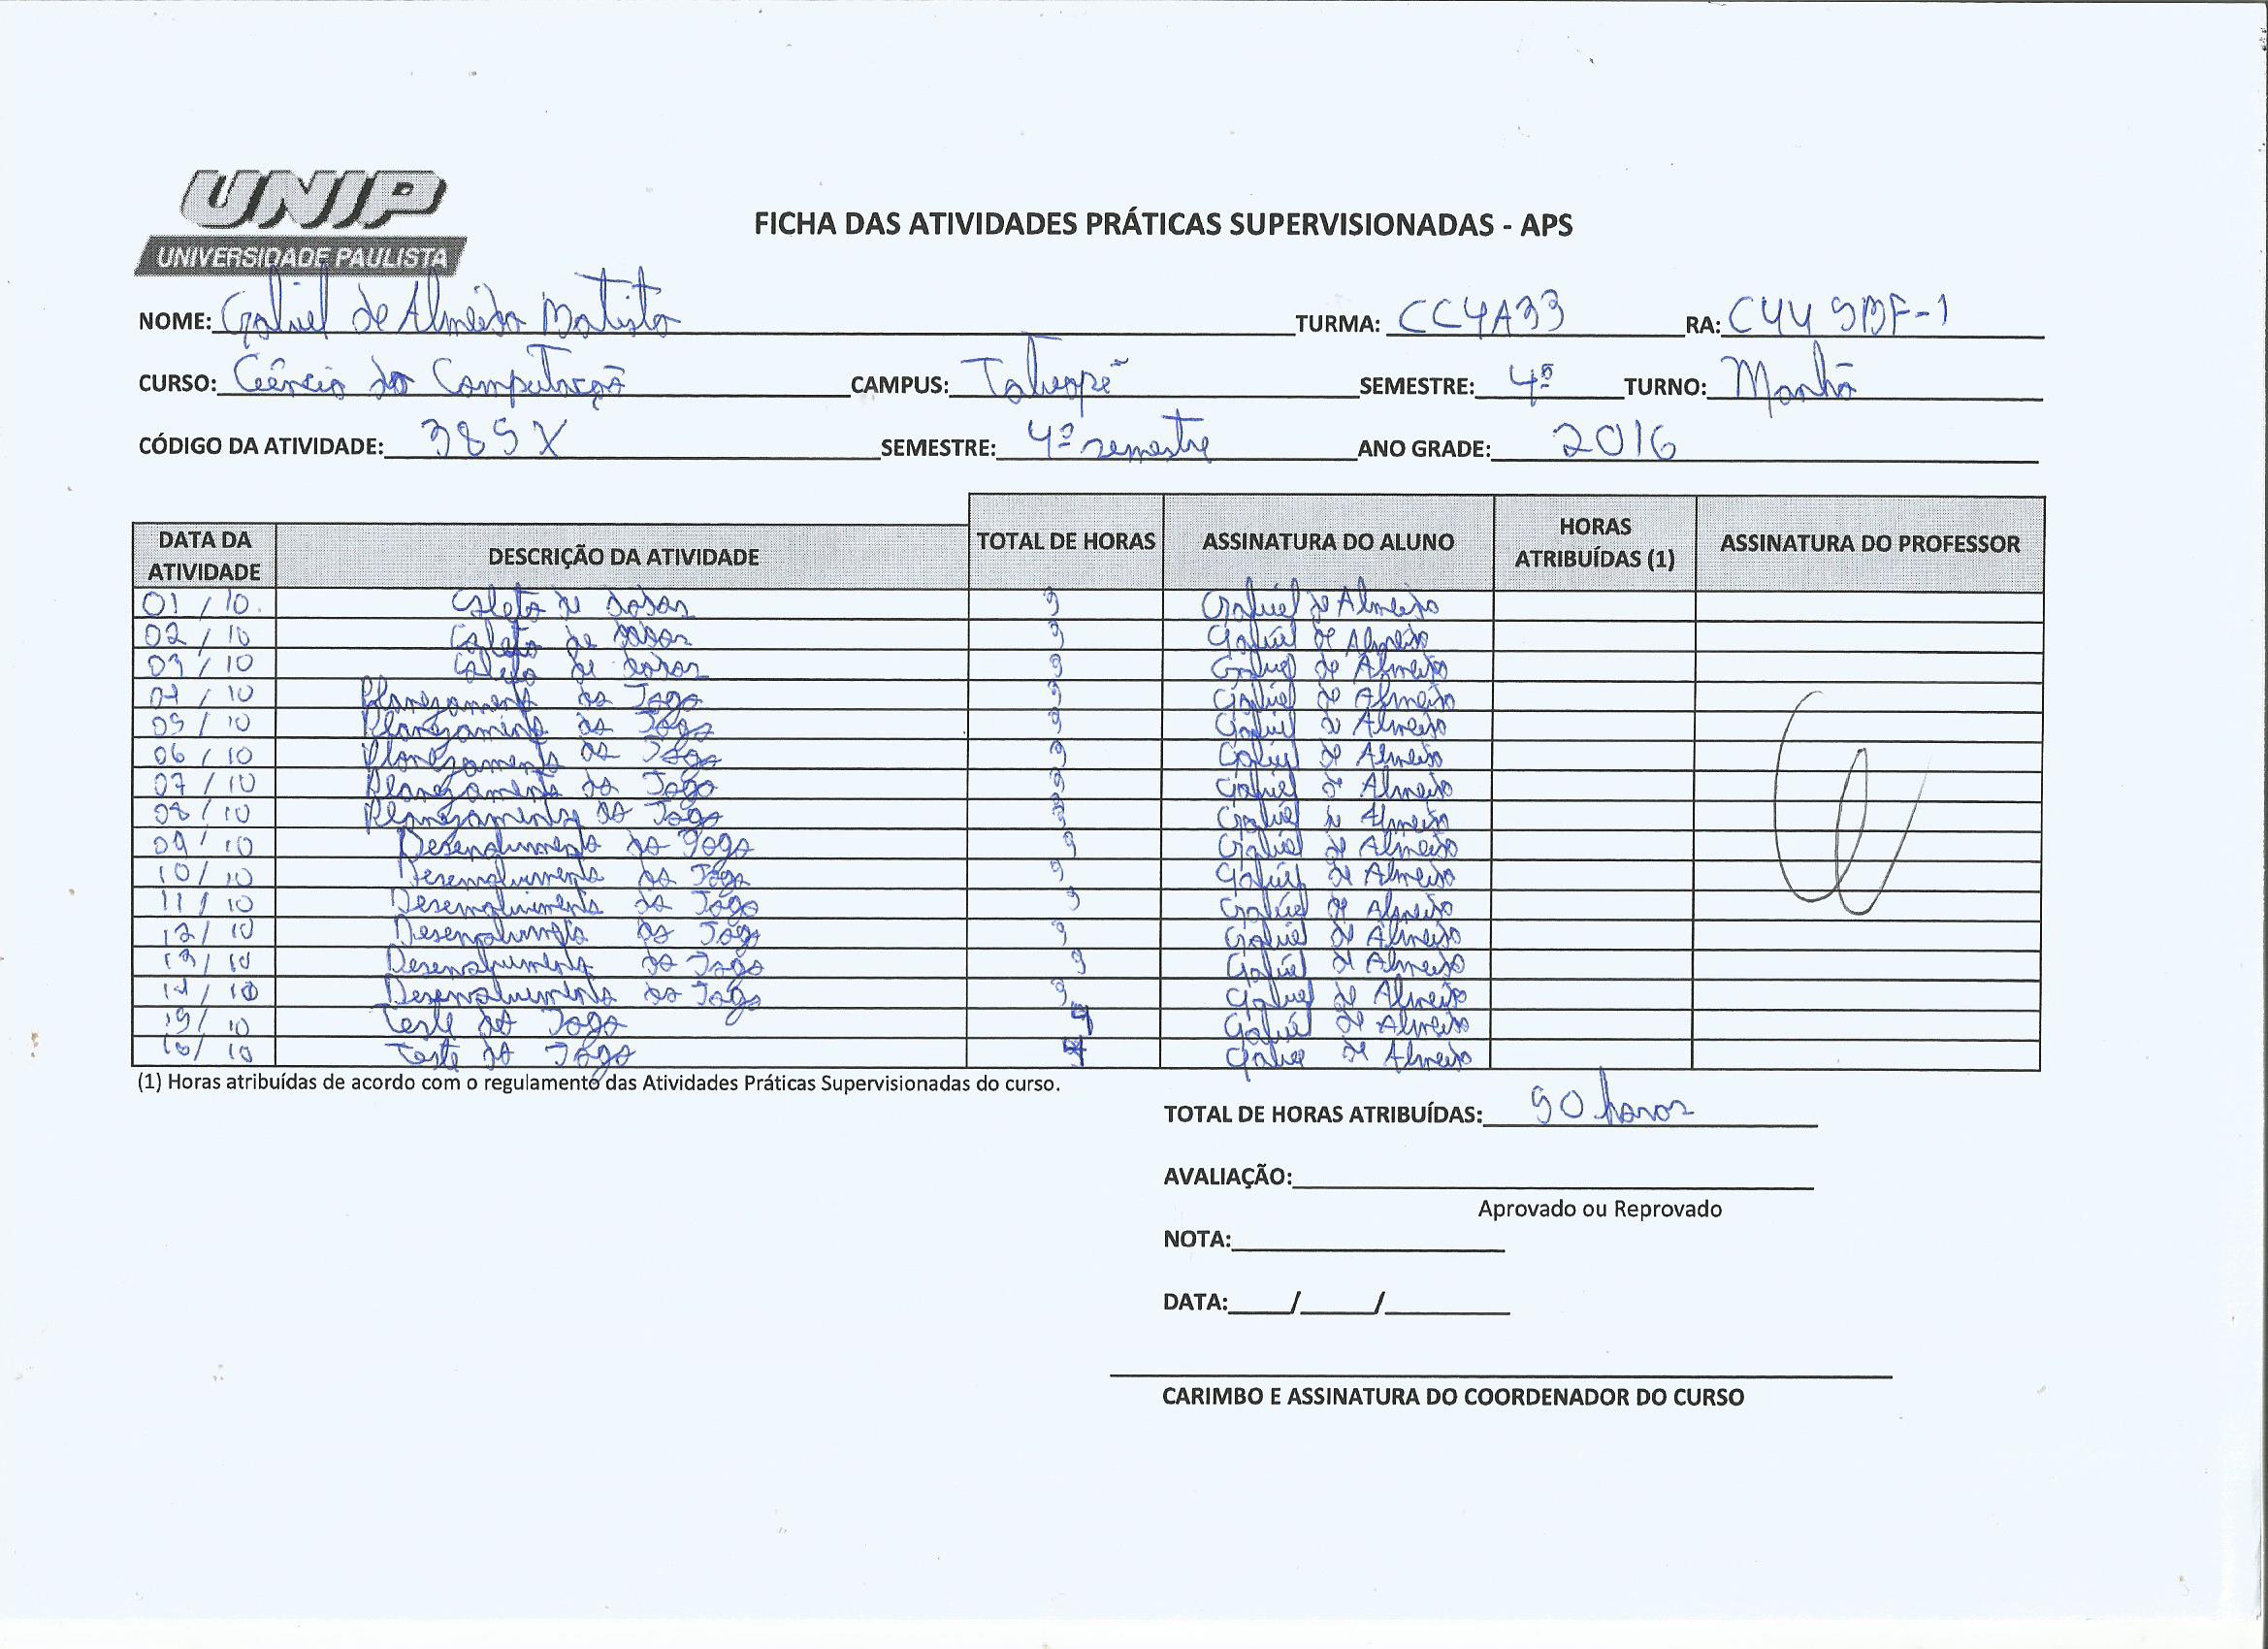 UNIP
UNIVERSIDADE PAULISTA
FICHA DAS ATIVIDADES PRÁTICAS SUPERVISIONADAS - APS
NOME: Gabriel de Almeida Batista TURMA: CC4A33 RA: C44 9BF-1
CURSO: Ciência da Computação CAMPUS: Tatuapé SEMESTRE: 4º TURNO: Manhã
CÓDIGO DA ATIVIDADE: 389X SEMESTRE: 4º semestre ANO GRADE: 2016
DATA DA ATIVIDADE DESCRIÇÃO DA ATIVIDADE TOTAL DE HORAS ASSINATURA DO ALUNO HORAS ATRIBUÍDAS (1) ASSINATURA DO PROFESSOR
01 / 10 Coleta de dados Gabriel de Almeida
02 / 10 Coleta de dados Gabriel de Almeida
03 / 10 Coleta de dados Gabriel de Almeida
04 / 10 Planejamento do Jogo Gabriel de Almeida
05 / 10 Planejamento do Jogo Gabriel de Almeida
06 / 10 Planejamento do Jogo Gabriel de Almeida
07 / 10 Planejamento do Jogo Gabriel de Almeida
08 / 10 Planejamento do Jogo Gabriel de Almeida
09 / 10 Desenvolvimento do Jogo Gabriel de Almeida
10 / 10 Desenvolvimento do Jogo Gabriel de Almeida
11 / 10 Desenvolvimento do Jogo Gabriel de Almeida
12 / 10 Desenvolvimento do Jogo Gabriel de Almeida
13 / 10 Desenvolvimento do Jogo Gabriel de Almeida
14 / 10 Desenvolvimento do Jogo Gabriel de Almeida
15 / 10 Teste do Jogo Gabriel de Almeida
16 / 10 Teste do Jogo Gabriel de Almeida
(1) Horas atribuídas de acordo com o regulamento das Atividades Práticas Supervisionadas do curso.
TOTAL DE HORAS ATRIBUÍDAS: 90 horas
AVALIAÇÃO:
Aprovado ou Reprovado
NOTA:
DATA: / /
CARIMBO E ASSINATURA DO COORDENADOR DO CURSO